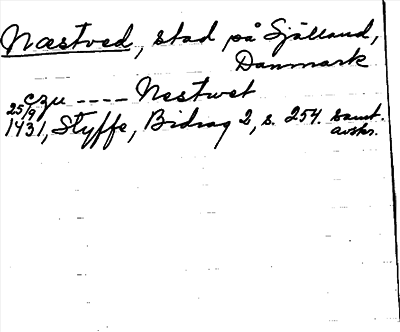 Næstved, stad på Själland,
Danmark
czu ---- Nestwet
25/9 1431, Styffe, Bidrag 2, s. 254. samt. avskr.